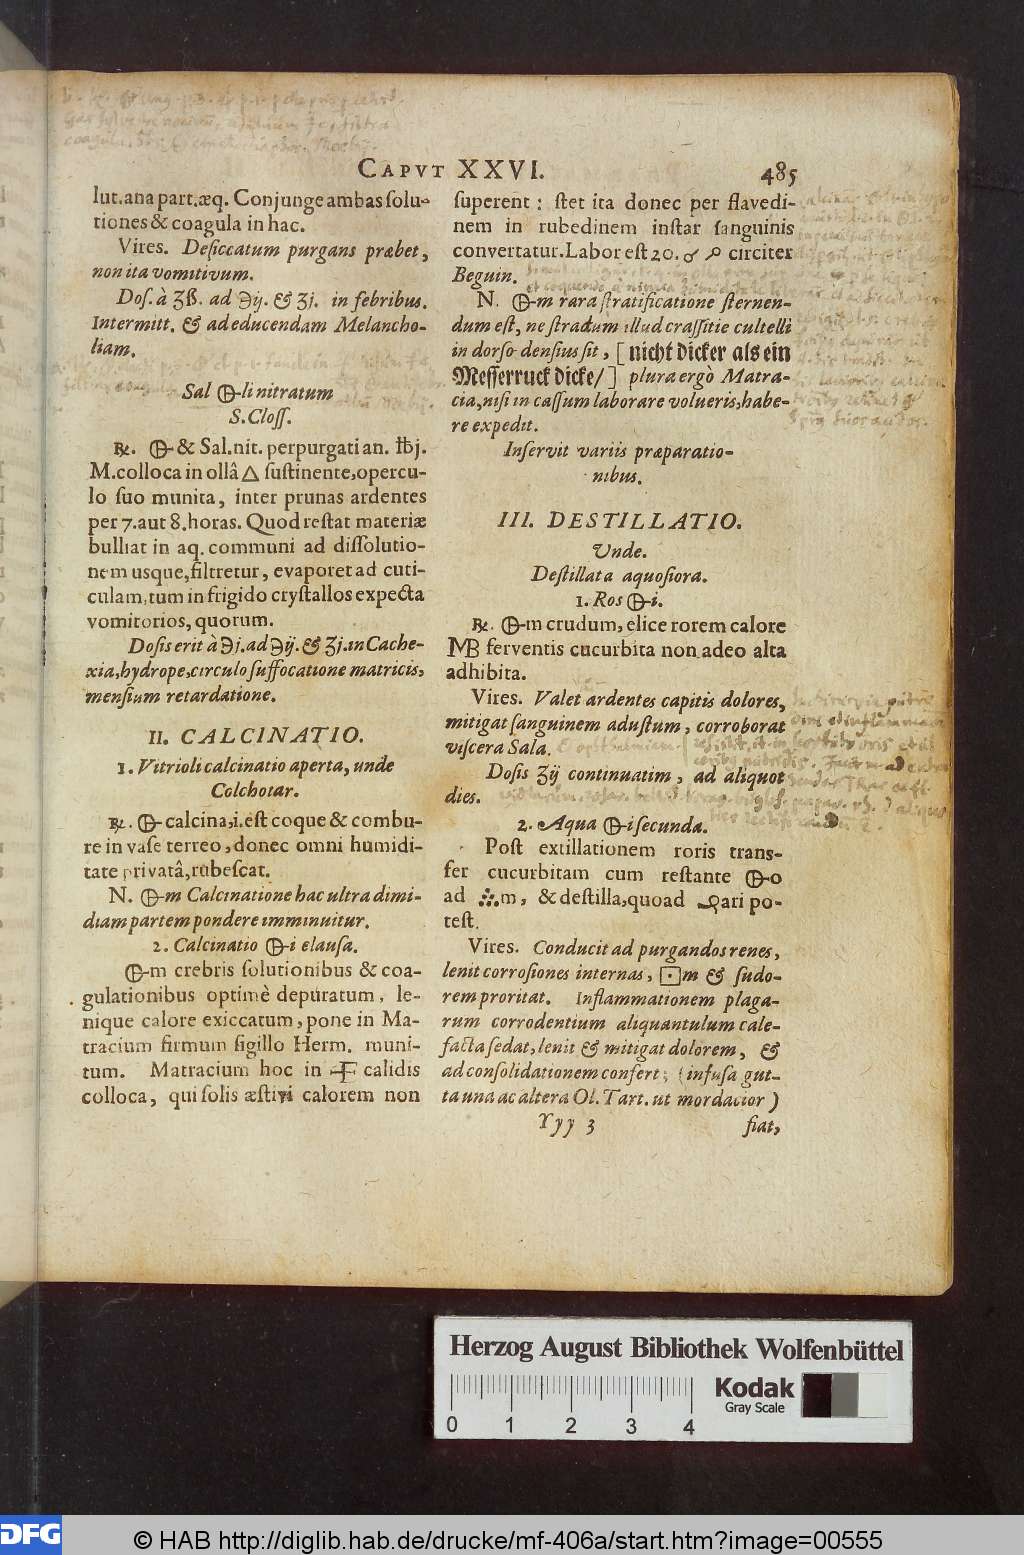 CAPVT XXVI. 485
lut. ana part. æq. Conjunge ambas ſolu-
tiones & coagula in hac.
Vires. Deſiccatum purgans præbet,
non ita vomitivum.
Doſ. à ʒß. ad ℈ij. & ʒj. in febribus.
Intermitt. & ad educendam Melancho-
liam.
Sal 🜖li nitratum
S. Cloſſ.
℞. 🜖 & Sal. nit. perpurgati an. ℔j.
M. colloca in ollâ 🜂 ſuſtinente, opercu-
lo ſuo munita, inter prunas ardentes
per 7. aut 8. horas. Quod reſtat materiæ
bulliat in aq. communi ad diſſolutio-
nem usque, filtretur, evaporet ad cuti-
culam, tum in frigido cryſtallos expecta
vomitorios, quorum.
Doſis erit à ℈j. ad ℈ij. & ʒj. in Cache-
xia, hydrope, circulo ſuffocatione matricis,
menſium retardatione.
II. CALCINATIO.
1. Vitrioli calcinatio aperta, unde
Colchotar.
℞. 🜖 calcina, i. eſt coque & combu-
re in vaſe terreo, donec omni humidi-
tate privatâ, rubeſcat.
N. 🜖m Calcinatione hac ultra dimi-
diam partem pondere imminuitur.
2. Calcinatio 🜖i elauſa.
🜖m crebris ſolutionibus & coa-
gulationibus optimè depuratum, le-
nique calore exiccatum, pone in Ma-
tracium firmum ſigillo Herm. muni-
tum. Matracium hoc in calidis
colloca, qui ſolis æſtivi calorem non
ſuperent: ſtet ita donec per flavedi-
nem in rubedinem inſtar ſanguinis
convertatur. Labor eſt 20. circiter
Beguin.
N. 🜖m rara ſtratificatione ſternen-
dum eſt, ne ſtratum illud craſſitie cultelli
in dorſo denſius ſit, [nicht dicker als ein
Meſſerruck dicke/] plura ergò Matra-
cia, niſi in caſſum laborare volueris, habe-
re expedit.
Inſervit variis præparatio-
nibus.
III. DESTILLATIO.
Unde.
Deſtillata aquoſiora.
1. Ros 🜖i.
℞. 🜖m crudum, elice rorem calore
MB ferventis cucurbita non adeo alta
adhibita.
Vires. Valet ardentes capitis dolores,
mitigat ſanguinem aduſtum, corroborat
viſcera Sala.
Doſis ʒij continuatim, ad aliquot
dies.
2. Aqua 🜖i ſecunda.
Poſt extillationem roris trans-
fer cucurbitam cum reſtante 🜖o
ad m, & deſtilla, quoad ari po-
teſt.
Vires. Conducit ad purgandos renes,
lenit corroſiones internas, ⊡m & ſudo-
rem proritat. Inflammationem plaga-
rum corrodentium aliquantulum cale-
facta ſedat, lenit & mitigat dolorem, &
ad conſolidationem confert; (infuſa gut-
ta una ac altera Ol. Tart. ut mordacior)
Yyy 3 fiat,
Herzog August Bibliothek Wolfenbüttel
Kodak
Gray Scale
0 1 2 3 4
DFG
© HAB http://diglib.hab.de/drucke/mf-406a/start.htm?image=00555